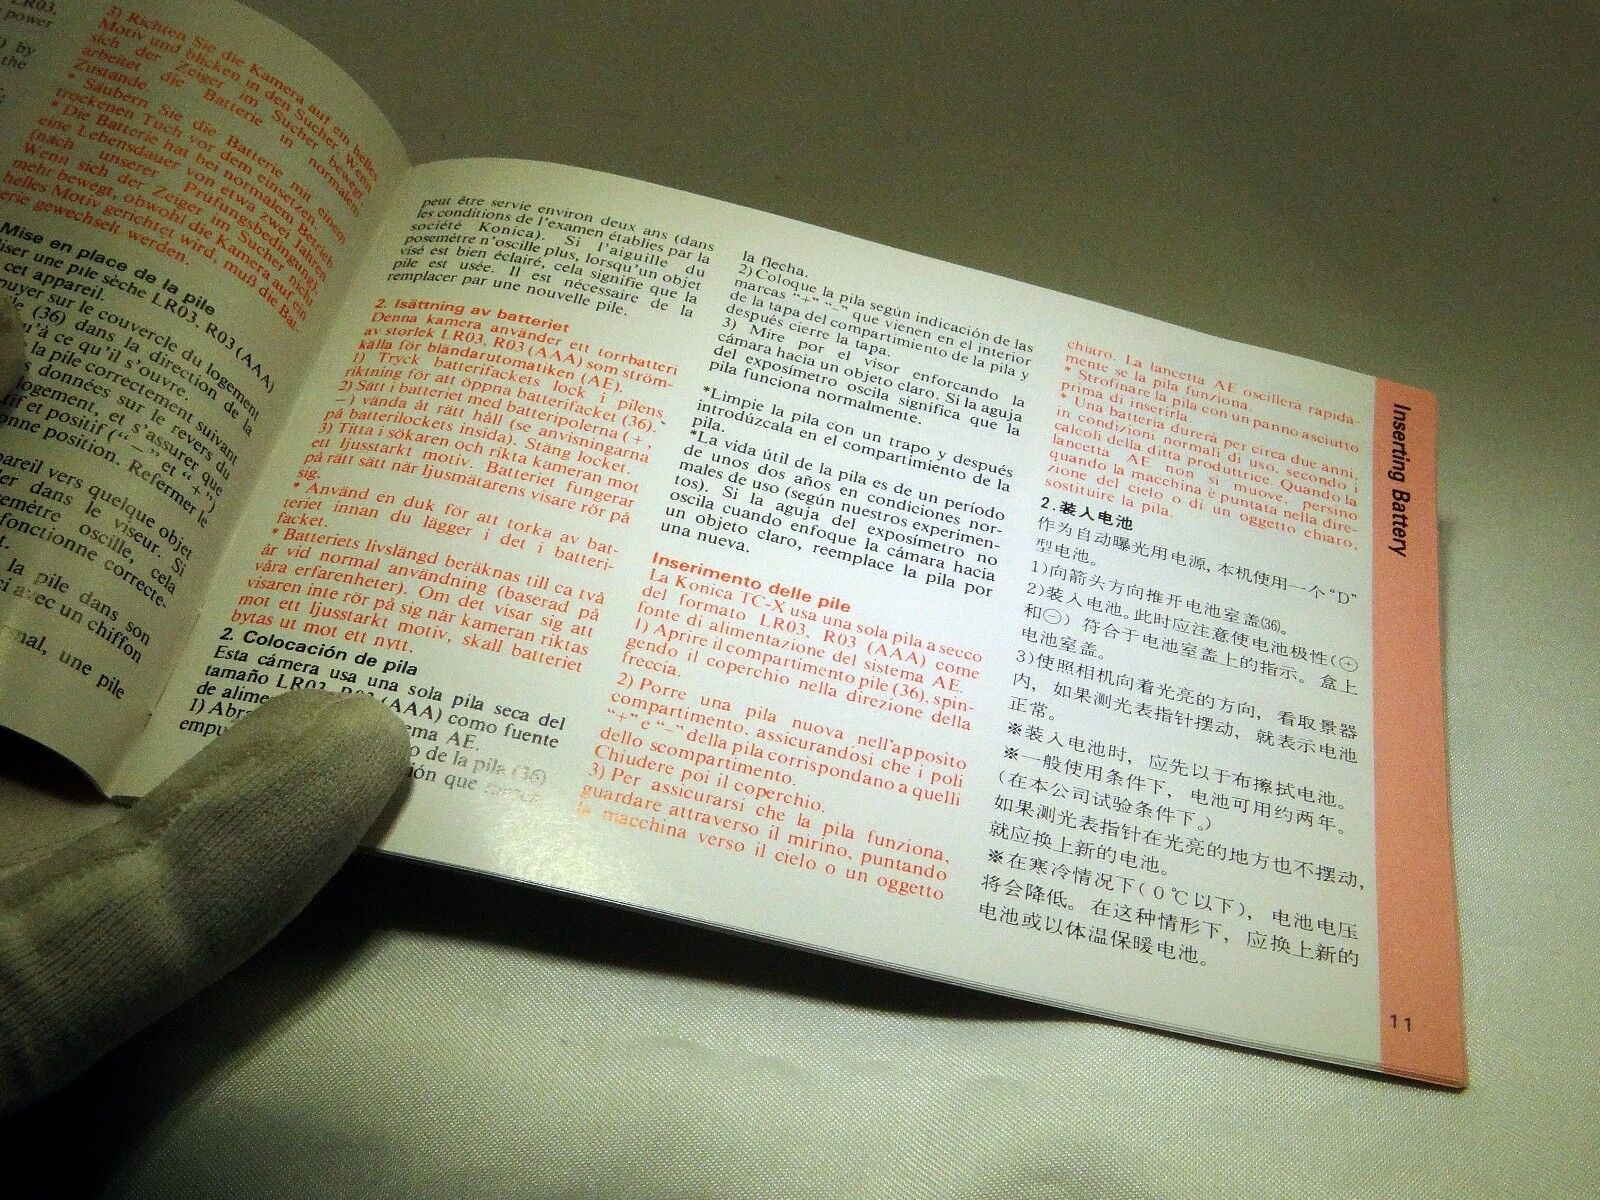 LR03,
power
by
the
3) Richten Sie die Kamera auf ein helles
Motiv und blicken in den Sucher. Wenn
sich der Zeiger im Sucher bewegt,
arbeitet die Batterie in normalem
Zustande.
* Säubern Sie die Batterie mit einem
trockenen Tuch vor dem einsetzen.
* Die Batterie hat bei normalem Betrieb
eine Lebensdauer von etwa zwei Jahren
(nach unserer Prüfungsbedingung).
Wenn sich der Zeiger im Sucher nicht
mehr bewegt, obwohl die Kamera auf ein
helles Motiv gerichtet wird, muß die Bat-
erie gewechselt werden.
Mise en place de la pile
iser une pile sèche LR03, R03 (AAA)
cet appareil.
puyer sur le couvercle du logement
(36) dans la direction de la
qu'à ce qu'il s'ouvre.
la pile correctement suivant
s données sur le revers du
logement, et s'assurer que
tif et positif (“−” et “+”)
onne position. Refermer le
pareil vers quelque objet
er dans le viseur. Si
semètre oscille, cela
fonctionne correcte-
t.
la pile dans son
ci avec un chiffon
mal, une pile
peut être servie environ deux ans (dans
les conditions de l'examen établies par la
société Konica). Si l'aiguille du
posemètre n'oscille plus, lorsqu'un objet
visé est bien éclairé, cela signifie que la
pile est usée. Il est nécessaire de la
remplacer par une nouvelle pile.
2. Isättning av batteriet
Denna kamera använder ett torrbatteri
av storlek LR03, R03 (AAA) som ström-
källa för bländarutomatiken (AE).
1) Tryck batterifackets lock i pilens
riktning för att öppna batterifacket (36).
2) Sätt i batteriet med batteripolerna (+,
−) vända åt rätt håll (se anvisningarna
på batterilockets insida). Stäng locket.
3) Titta i sökaren och rikta kameran mot
ett ljusstarkt motiv. Batteriet fungerar
på rätt sätt när ljusmätarens visare rör på
sig.
* Använd en duk för att torka av bat-
teriet innan du lägger i det i batteri-
facket.
* Batteriets livslängd beräknas till ca två
år vid normal användning (baserad på
våra erfarenheter). Om det visar sig att
visaren inte rör på sig när kameran riktas
mot ett ljusstarkt motiv, skall batteriet
bytas ut mot ett nytt.
2. Colocación de pila
Esta cámera usa una sola pila seca del
tamaño LR03, R03 (AAA) como fuente
de alime ema AE.
1) Abr o de la pila (36)
empu ión que
la flecha.
2) Coloque la pila según indicación de las
marcas “+” “−” que vienen en el interior
de la tapa del compartimiento de la pila y
después cierre la tapa.
3) Mire por el visor enforcando la
cámara hacia un objeto claro. Si la aguja
del exposímetro oscila significa que la
pila funciona normalmente.
*Limpie la pila con un trapo y después
introdúzcala en el compartimiento de la
pila.
*La vida útil de la pila es de un período
de unos dos años en condiciones nor-
males de uso (según nuestros experimen-
tos). Si la aguja del exposímetro no
oscila cuando enfoque la cámara hacia
un objeto claro, reemplace la pila por
una nueva.
Inserimento delle pile
La Konica TC-X usa una sola pila a secco
del formato LR03, R03 (AAA) come
fonte di alimentazione del sistema AE.
1) Aprire il compartimento pile (36), spin-
gendo il coperchio nella direzione della
freccia.
2) Porre una pila nuova nell'apposito
compartimento, assicurandosi che i poli
“+” e “−” della pila corrispondano a quelli
dello scompartimento.
Chiudere poi il coperchio.
3) Per assicurarsi che la pila funziona,
guardare attraverso il mirino, puntando
la macchina verso il cielo o un oggetto
chiaro. La lancetta AE oscillerà rapida-
mente se la pila funziona.
* Strofinare la pila con un panno asciutto
prima di inserirla.
* Una batteria durerà per circa due anni,
in condizioni normali di uso, secondo i
calcoli della ditta produttrice. Quando la
lancetta AE non si muove, persino
quando la macchina è puntata nella dire-
zione del cielo o di un oggetto chiaro,
sostituire la pila.
2.装入电池
作为自动曝光用电源,本机使用一个“D”
型电池。
1)向箭头方向推开电池室盖(36)。
2)装入电池。此时应注意使电池极性(⊕
和⊖) 符合于电池室盖上的指示。盒上
电池室盖。
3)使照相机向着光亮的方向，看取景器
内，如果测光表指针摆动，就表示电池
正常。
※装入电池时，应先以于布擦拭电池。
※一般使用条件下，电池可用约两年。
(在本公司试验条件下。)
如果测光表指针在光亮的地方也不摆动，
就应换上新的电池。
※在寒冷情况下(0℃以下)，电池电压
将会降低。在这种情形下，应换上新的
电池或以体温保暖电池。
Inserting Battery
11